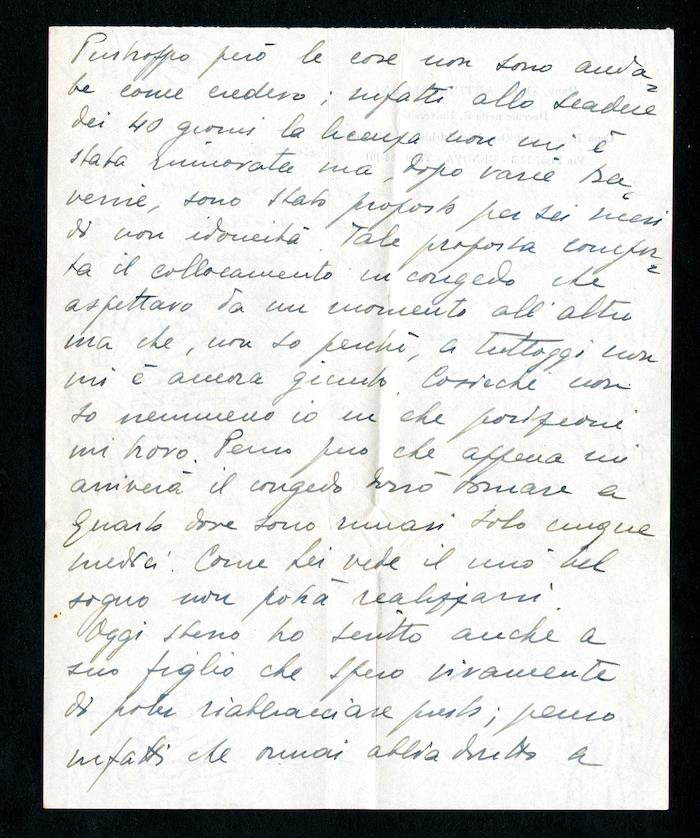 Purtroppo però le cose non sono anda=
te come credevo; infatti allo scadere
dei 40 giorni la licenza non mi è
stata rinnovata ma, dopo varie tra=
versie, sono stato proposto per sei mesi
di non idoneità. Tale proposta compor=
ta il collocamento in congedo che
aspettavo da un momento all'altro
ma che, non so perchè, a tutt'oggi non
mi è ancora giunto. Cosicchè non
so nemmeno io in che posizione
mi trovo. Penso però che appena mi
arriverà il congedo dovrò tornare a
Quarto dove sono rimasti solo cinque
medici. Come Lei vede il mio bel
sogno non potrà realizzarsi.
Oggi stesso ho scritto anche a
suo figlio che spero vivamente
di poter riabbracciare presto; penso
infatti che ormai abbia diritto a